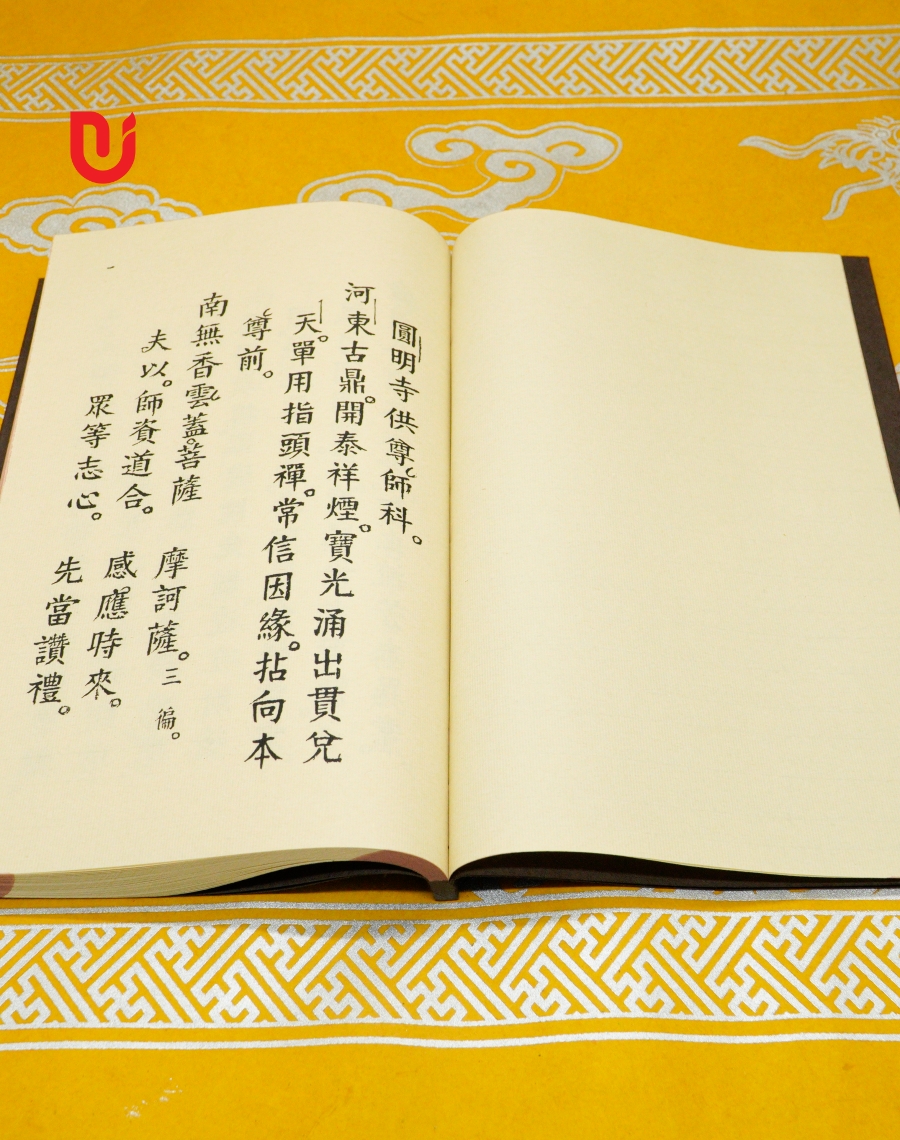 圓明寺供尊師科。
河東古鼎。開泰祥煙。寶光涌出貫兌
天。單用指頭禪。常信因緣。拈向本
尊前。
南無香雲蓋。菩薩 摩訶薩。三徧。
夫以。師資道合。 感應時來。
眾等志心。 先當讚禮。